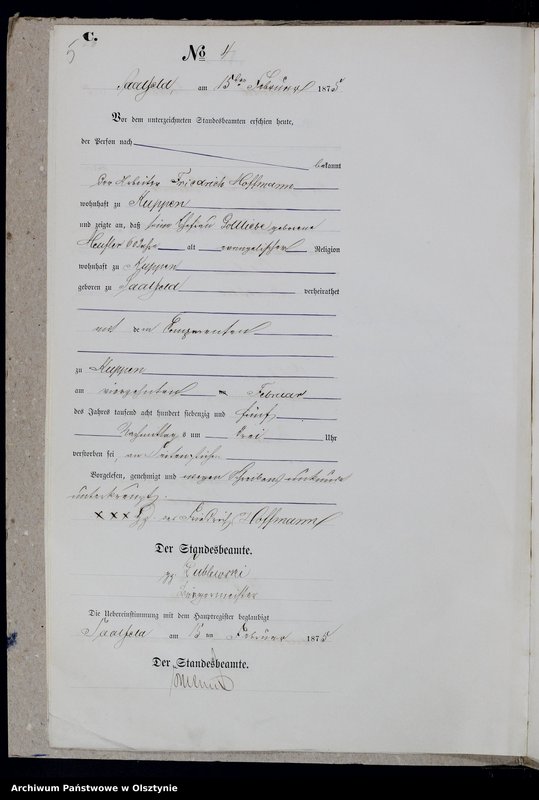 5
C.
No 4
Saalfeld, am 15ten Februar 1875
Vor dem unterzeichneten Standesbeamten erschien heute,
der Person nach
bekannt
Der Arbeiter Friedrich Hoffmann
wohnhaft zu Kuppen
und zeigte an, daß seine Ehefrau Gottliebe geborene
60 Jahre alt evangelischer Religion
wohnhaft zu Kuppen
geboren zu Saalfeld verheirathet
mit dem Comparenten
zu Kuppen
am vierzehnten Februar
des Jahres tausend acht hundert siebenzig und fünf
Nachmittags um drei Uhr
verstorben sei,
Vorgelesen, genehmigt und wegen Schreibensunkunde
unterkreuzt.
x x x Hz. des Friedrich Hoffmann
Der Standesbeamte.
gz
Bürgermeister
Die Uebereinstimmung mit dem Hauptregister beglaubigt
Saalfeld am 15 ten Februar 1875
Der Standesbeamte.
Archiwum Państwowe w Olsztynie